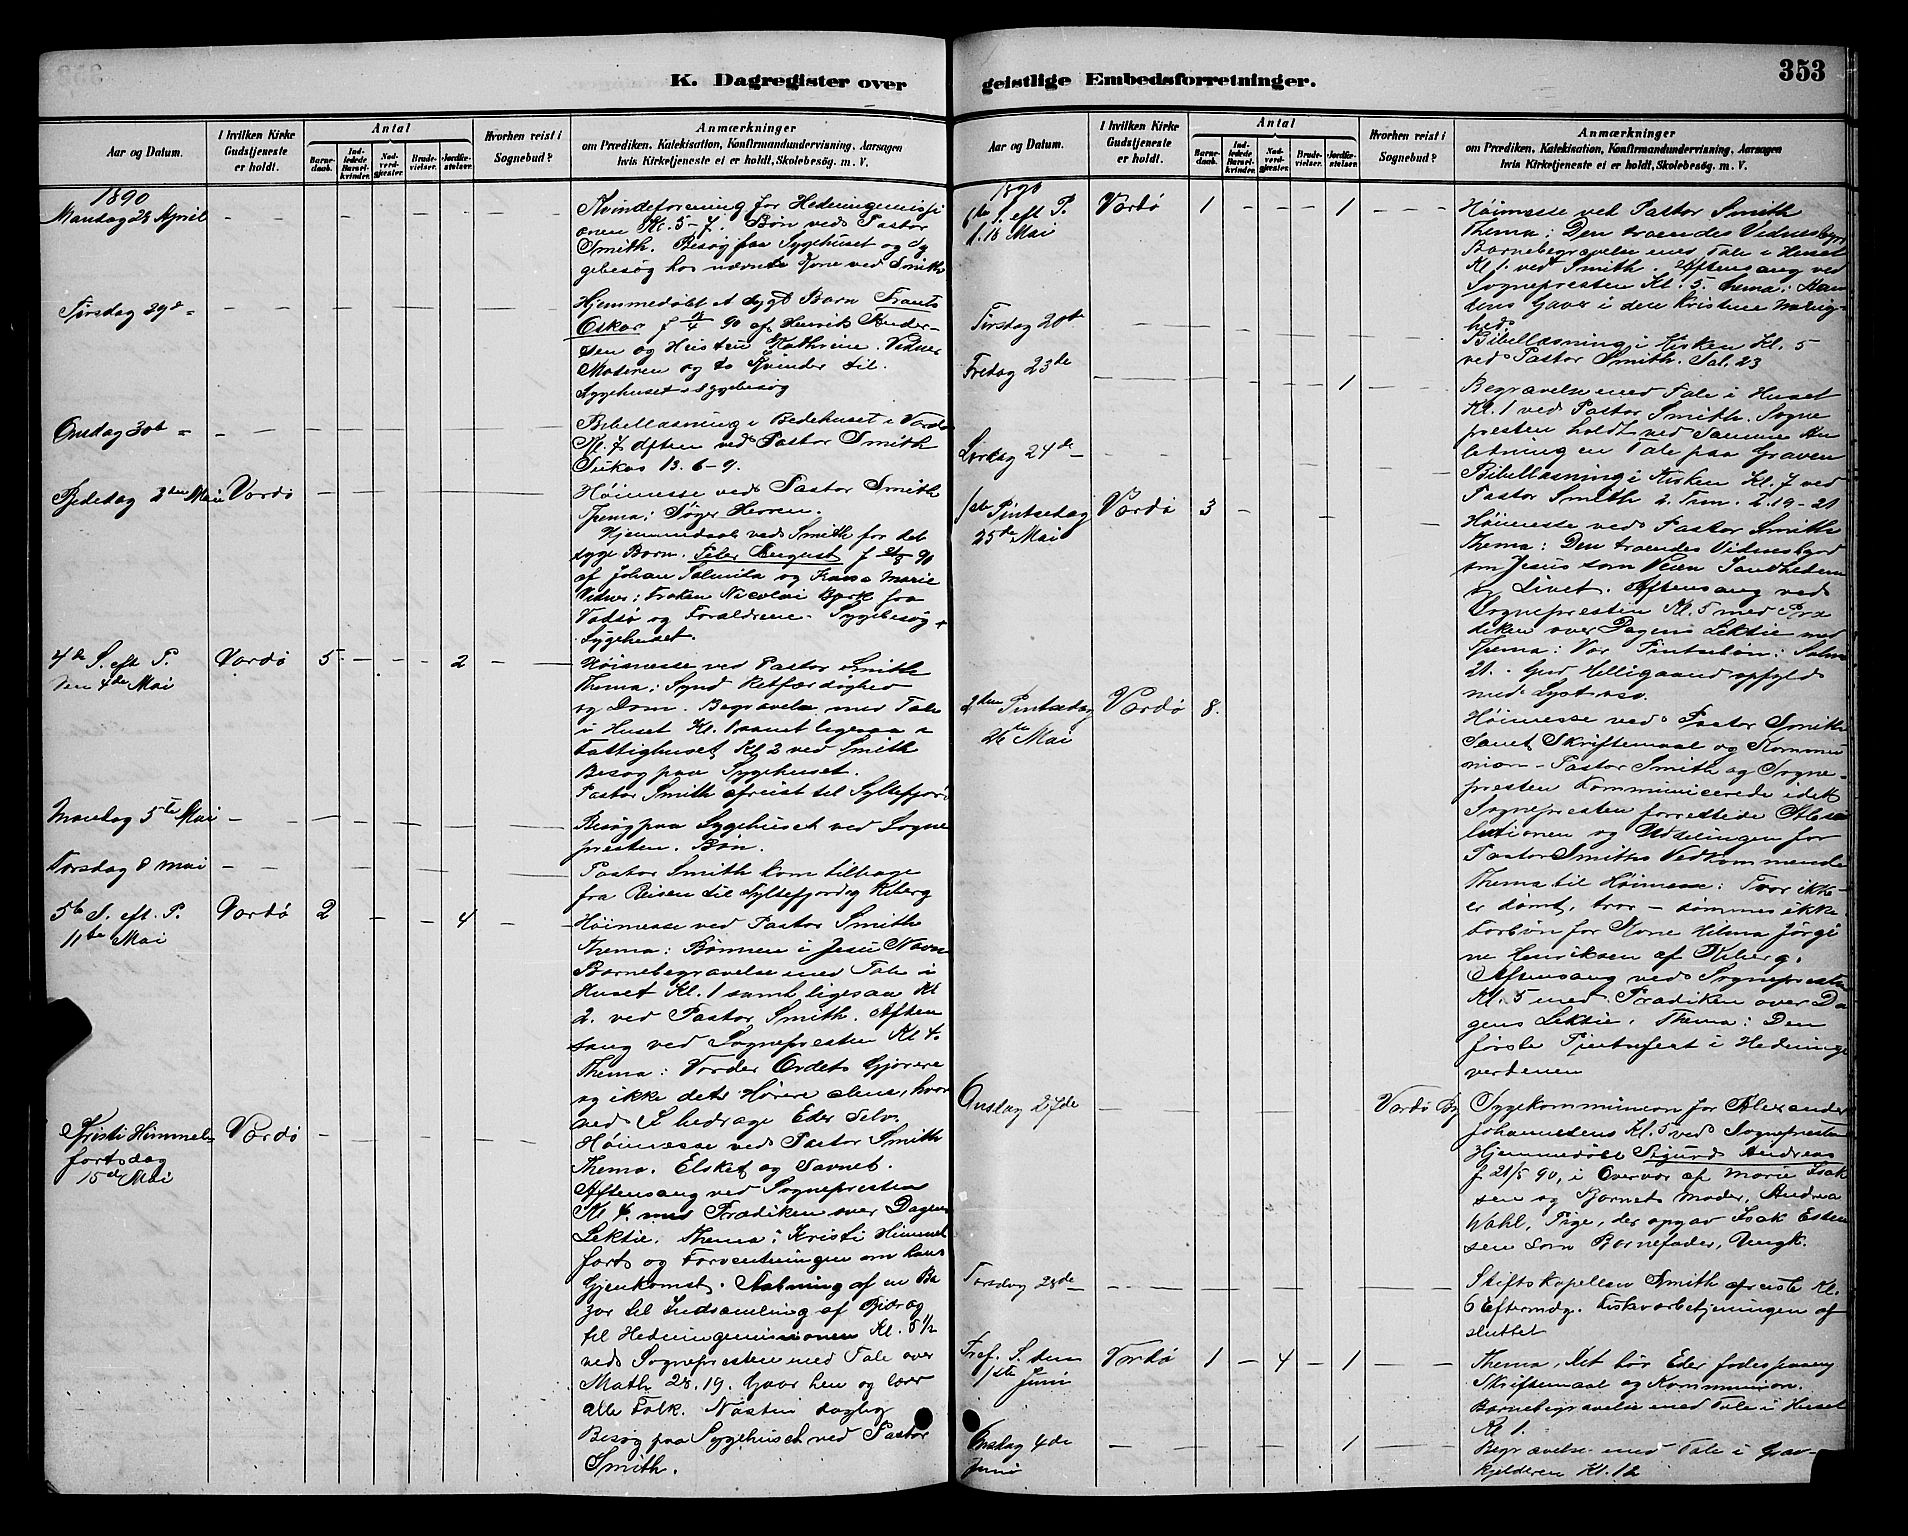 353
K. Dagregister over
geistlige Embedsforretninger.
Aar og Datum.
I hvilken Kirke Gudstjeneste er holdt.
Antal
Barnedaab.
Indledede Barselkvinder.
Nadverdgjester.
Brudevielser.
Jordfæstelser.
Hvorhen reist i Sognebud?
Anmærkninger
om Prædiken, Katekisation, Konfirmandundervisning, Aarsagen
hvis Kirketjeneste ei er holdt, Skolebesög. m. V.
1890
Mandag 28 April
Kvindeforening for Hedningemissi
onen Kl. 5-7. Bøn ved Pastor
Smith. Besøg paa Sygehuset og Sy
gebesøg hos nævnte Kone ved Smith
Tirsdag 29de
Hjemmedøbt et sygt Barn Frants
Oskar f 90 af Henrik Ander-
sen og Hustru Kathrine. Vidner
Moderen og to Kvinder til.
Sygehuset Sygebesøg
Onsdag 30te
Bibellæsning i Bedehuset i Vardø
Kl. 7 Aften ved Pastor Smith
Lukas 13. 6-9.
Bededag 2den Mai Vardø
Høimesse ved Pastor Smith
Thema: Søger Herren.
Hjemmedaab ved Smith for det
syge Barn. Peter August f 90
af Johan og Marie
Vidner: Frøken Nicolai Bork fra
Vadsø og Forældrene. Sygebesøg
Sygehuset.
4de S. eft P. Vardø 5 2
den 4de Mai
Høimesse ved Pastor Smith
Thema: Synd Retfærdighed
og Dom. Begravelse med Tale
i Huset Kl. 1 samt ligesaa i
Fattighuset Kl 2 ved Smith
Besøg paa Sygehuset.
Pastor Smith afreist til Syltefjord
Mandag 5te Mai
Besøg paa Sygehuset ved Sogne
presten. Bøn.
Torsdag 8 Mai
Pastor Smith kom tilbage
fra Reisen til Syltefjord og Kiberg
5te S. eft. P. Vardø 2 4
11te Mai
Høimesse ved Pastor Smith
Thema: Bønnen i Jesu Navn
Barnebegravelse med Tale i
Huset Kl. 1 samt ligesaa Kl
2. ved Pastor Smith. Aften
sang ved Sognepresten Kl 4.
Thema: Vorder Ordets Gjørere
og ikke dets Hørere alene, hvor
ved I bedrage Eder selv.
Kristi Himmel Vardø
fartsdag
15de Mai
Høimesse ved Pastor Smith
Thema. Elsket og Savnet.
Aftensang ved Sognepresten
Kl 4. med Prædiken over Dagens
Lektie. Thema: Kristi Himmel
fart og Forventningen om hans
Gjenkomst. Aabning af en Ba
zar til Indsamling af Bidrag
til Hedningemissionen Kl. 5 1/2
ved Sognepresten med Tale over
Math 28. 19. Gaar hen og lærer
alle Folk. Næsten daglig
Besøg paa Sygehuset ved Pastor
Smith.
Aar og Datum.
I hvilken Kirke Gudstjeneste er holdt.
Antal
Barnedaab.
Indledede Barselkvinder.
Nadverdgjester.
Brudevielser.
Jordfæstelser.
Hvorhen reist i Sognebud?
Anmærkninger
om Prædiken, Katekisation, Konfirmandundervisning, Aarsagen
hvis Kirketjeneste ei er holdt, Skolebesög. m. V.
1890
6te S. eft P. Vardø 1 1
18 Mai
Høimesse ved Pastor Smith
Thema: Den troendes Vidnesbyrd
Barnebegravelse med Tale i Huset
Kl 1. ved Smith. Aftensang ved
Sognepresten Kl. 5. Thema:
dens Gaver i den Kristene
hed.
Tirsdag 20de
Bibellæsning i Kirken Kl. 5
ved Pastor Smith. Sal. 23
Fredag 23de 1
Begravelse med Tale i Huset
Kl. 1 ved Pastor Smith. Sogne
presten holdt ved samme An
ledning en Tale paa Graven
Lørdag 24de
Bibellæsning i Kirken Kl. 7 ved
Pastor Smith 2. Tim. 2. 19-21
1ste Pintsedag Vardø 3
25de Mai
Høimesse ved Pastor Smith
Thema: Den troendes Vidnesbyrd
om Jesus som Veien Sandheden
og Livet. Aftensang ved
Sognepresten Kl. 5 med Præ
diken over Dagens Lektie med
Thema: Vor Pintsebøn: Salme
21. Gud Helligaand opfyld
med Lyst os.
2den Pintsedag Vardø 8.
26de Mai
Høimesse ved Pastor Smith
samt Skriftemaal og Kommu
nion. Pastor Smith og Sogne-
presten kommunicerede idet
Sognepresten forrettede Abso
lutionen og Uddelingen for
Pastor Smiths Vedkommende
Thema til Høimesse: Tror ikke
er dømt, tror - dømmes ikke
Forbøn for Kone Helma Jørgi
ne Henriksen af Kiberg.
Aftensang ved Sognepresten
Kl. 5 med Prædiken over Da
gens Lektie. Thema: Den
første Pintsefest i Hedninge
verdenen
Onsdag 27de Vardø By
Sygekommunion for Alexander
Johannesens Kl. 5 ved Sognepresten
Hjemmedøbt Sigurd Andreas
f 21/5 90, i Overvær af Marie Isak
sen og Barnets Moder, Andrea
Wahl, Pige, der opgav Isak Esten
sen som Barnefader, Ungk.
Torsdag 28de
Stiftskapellan Smith afreiste Kl.
6 Eftermdg. Fiskværbetjeningen af
sluttet
Tref. S. den Vardø 1 4 1
1ste Juni
Thema. Det bør Eder fødes paany
Skriftemaal og Kommunion.
Barnebegravelse med Tale i Huset
Kl 1.
Onsdag 4de 1
Juni
Begravelse med Tale i Grav-
kjelderen Kl. 12